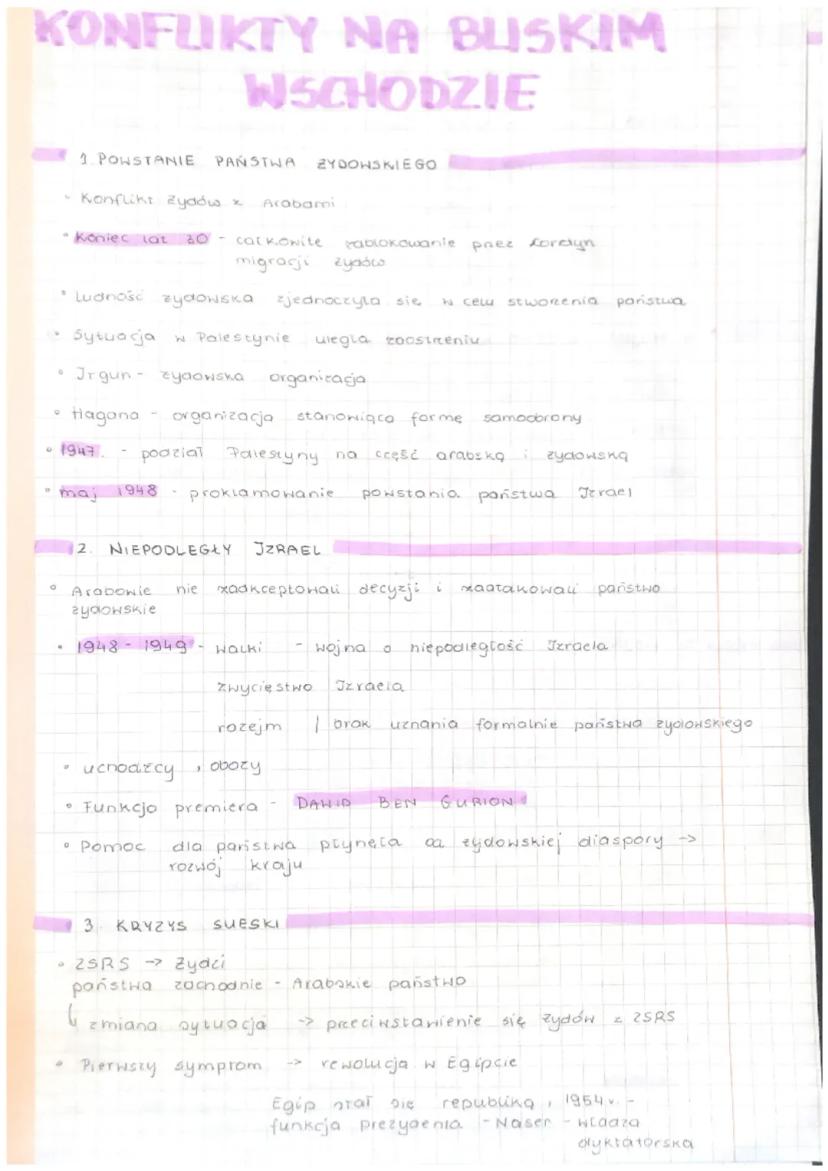 KONFLIKTY NA BLISKIM
WSCHODZIE
1. POWSTANIE PAŃSTWA ŻYDOWSKIEGO
• Konflikt Żydów z Arabami
• Koniec lat 30 - całkowite zablokowanie przez
migracji żydów
• Ludność żydowska zjednoczyła się w celu stworzenia państwa
• Sytuacja w Palestynie uległa zaostrzeniu
• Irgun - żydowska organizacja
• Hagana - organizacja stanowiąca formę samoobrony
• 1947. - podział Palestyny na część arabską i żydowską
• maj 1948 - proklamowanie powstania państwa Izrael
2. NIEPODLEGŁY IZRAEL
• Arabowie nie zaakceptowali decyzji i zaatakowali państwo
żydowskie
• 1948 - 1949 - walki - wojna o niepodległość Izraela
zwycięstwo Izraela
rozejm / brak uznania formalnie państwa żydowskiego
• uchodźcy, obozy
• Funkcja premiera - DAWID BEN GURION
• Pomoc dla państwa płynęła od żydowskiej diaspory ->
rozwój kraju
3. KRYZYS SUESKI
• ZSRS -> Żydzi
państwa zachodnie - Arabskie państwo
zmiana sytuacja -> przeciwstawienie się Żydów z ZSRS
• Pierwszy symptom -> rewolucja w Egipcie
Egip stał się republiką, 1954 r. -
funkcja prezydenta - Naser - władza
dyktatorska